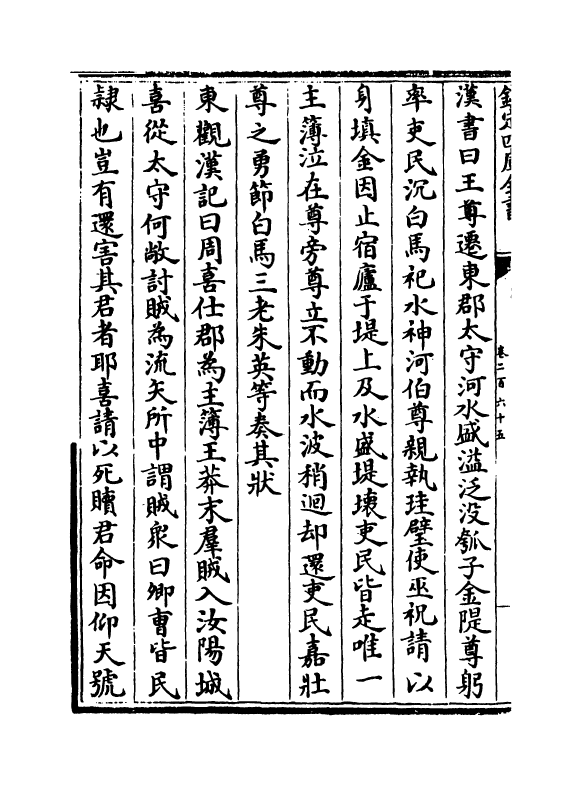 欽定四庫全書
卷二百六十五
漢書曰王尊遷東郡太守河水盛溢泛没瓠子金隄尊躬
率吏民沉白馬祀水神河伯尊親執珪璧使巫祝請以
身填金因止宿廬于堤上及水盛堤壊吏民皆走唯一
主簿泣在尊旁尊立不動而水波稍迴却還吏民嘉壮
尊之勇節白馬三老朱英等奏其狀
東觀漢記曰周喜仕郡為主簿王莽末羣賊入汝陽城
喜從太守何敞討賊為流矢所中謂賊衆曰卿曹皆民
隷也豈有還害其君者耶喜請以死贖君命因仰天號